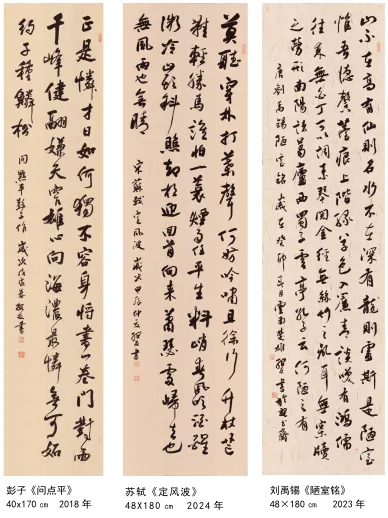 正是憐才日如何獨不容身將書一卷門對兩
千峰健翮嫌天窄雄心向海濃最憐無可妬
約子種鱗松
問點平彭子作 歲次戊戌春 書
莫聽穿林打葉聲何妨吟嘯且徐行竹杖芒
鞋輕勝馬誰怕一蓑煙雨任平生料峭春風吹酒醒
微冷山頭斜照卻相迎回首向來蕭瑟處歸去也
無風雨也無晴
宋蘇軾定風波 歲次甲辰仲夏 書
山不在高有仙則名水不在深有龍則靈斯是陋室
惟吾德馨苔痕上階綠草色入簾青談笑有鴻儒
往來無白丁可以調素琴閱金經無絲竹之亂耳無案牘
之勞形南陽諸葛廬西蜀子雲亭孔子云何陋之有
唐劉禹錫陋室銘 歲在癸卯
彭子《问点平》
40x170 cm 2018 年
苏轼《定风波》
48X180 cm 2024 年
刘禹锡《陋室铭》
48×180 cm 2023 年